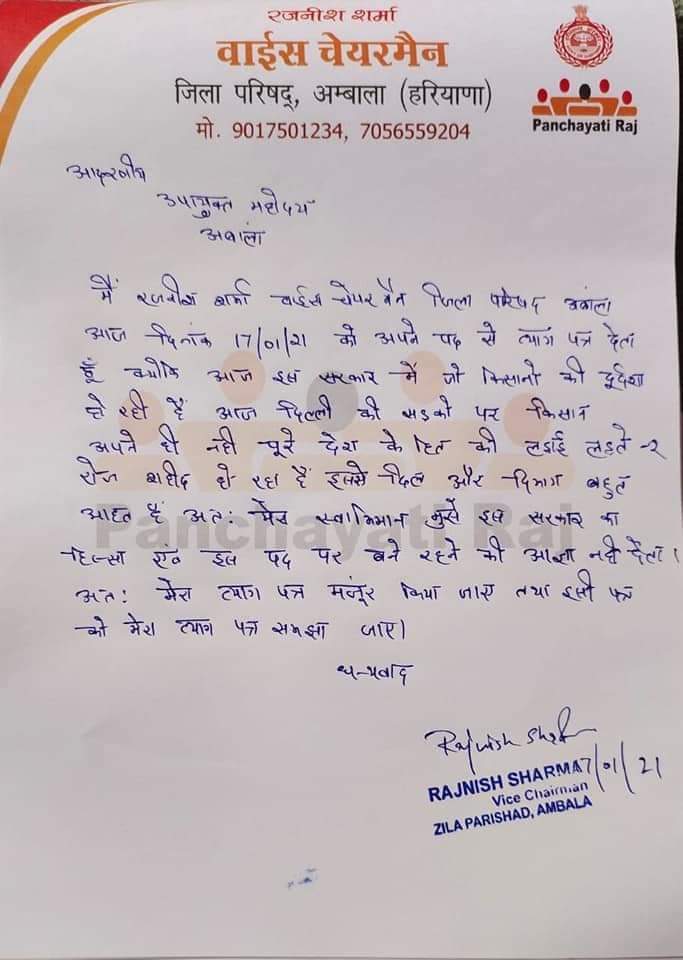 रजनीश शर्मा
वाईस चेयरमैन
जिला परिषद्, अम्बाला (हरियाणा)
मो. 9017501234, 7056559204
Panchayati Raj
आदरणीय
उपायुक्त महोदय
अंबाला
मैं रजनीश शर्मा वाईस चेयरमैन जिला परिषद अंबाला
आज दिनांक 17/01/21 को अपने पद से त्याग पत्र देता
हूँ क्योंकि आज इस सरकार में जो किसानों की दुर्दशा
हो रही हैं आज दिल्ली की सडको पर किसान
अपने ही नही पूरे देश के हित की लड़ाई लड़ते-२
रोज शहीद हो रहा हैं इससे दिल और दिमाग बहुत
आहत हैं अतः मेरा स्वाभिमान मुझे इस सरकार का
हिस्सा एवं इस पद पर बने रहने की आज्ञा नही देता।
अतः मेरा त्याग पत्र मंजूर किया जाए तथा इसी पत्र
को मेरा त्याग पत्र समझा जाए।
धन्यवाद
Panchayati Raj
Rajnish Sharma
RAJNISH SHARMA 17/01/21
Vice Chairman
ZILA PARISHAD, AMBALA